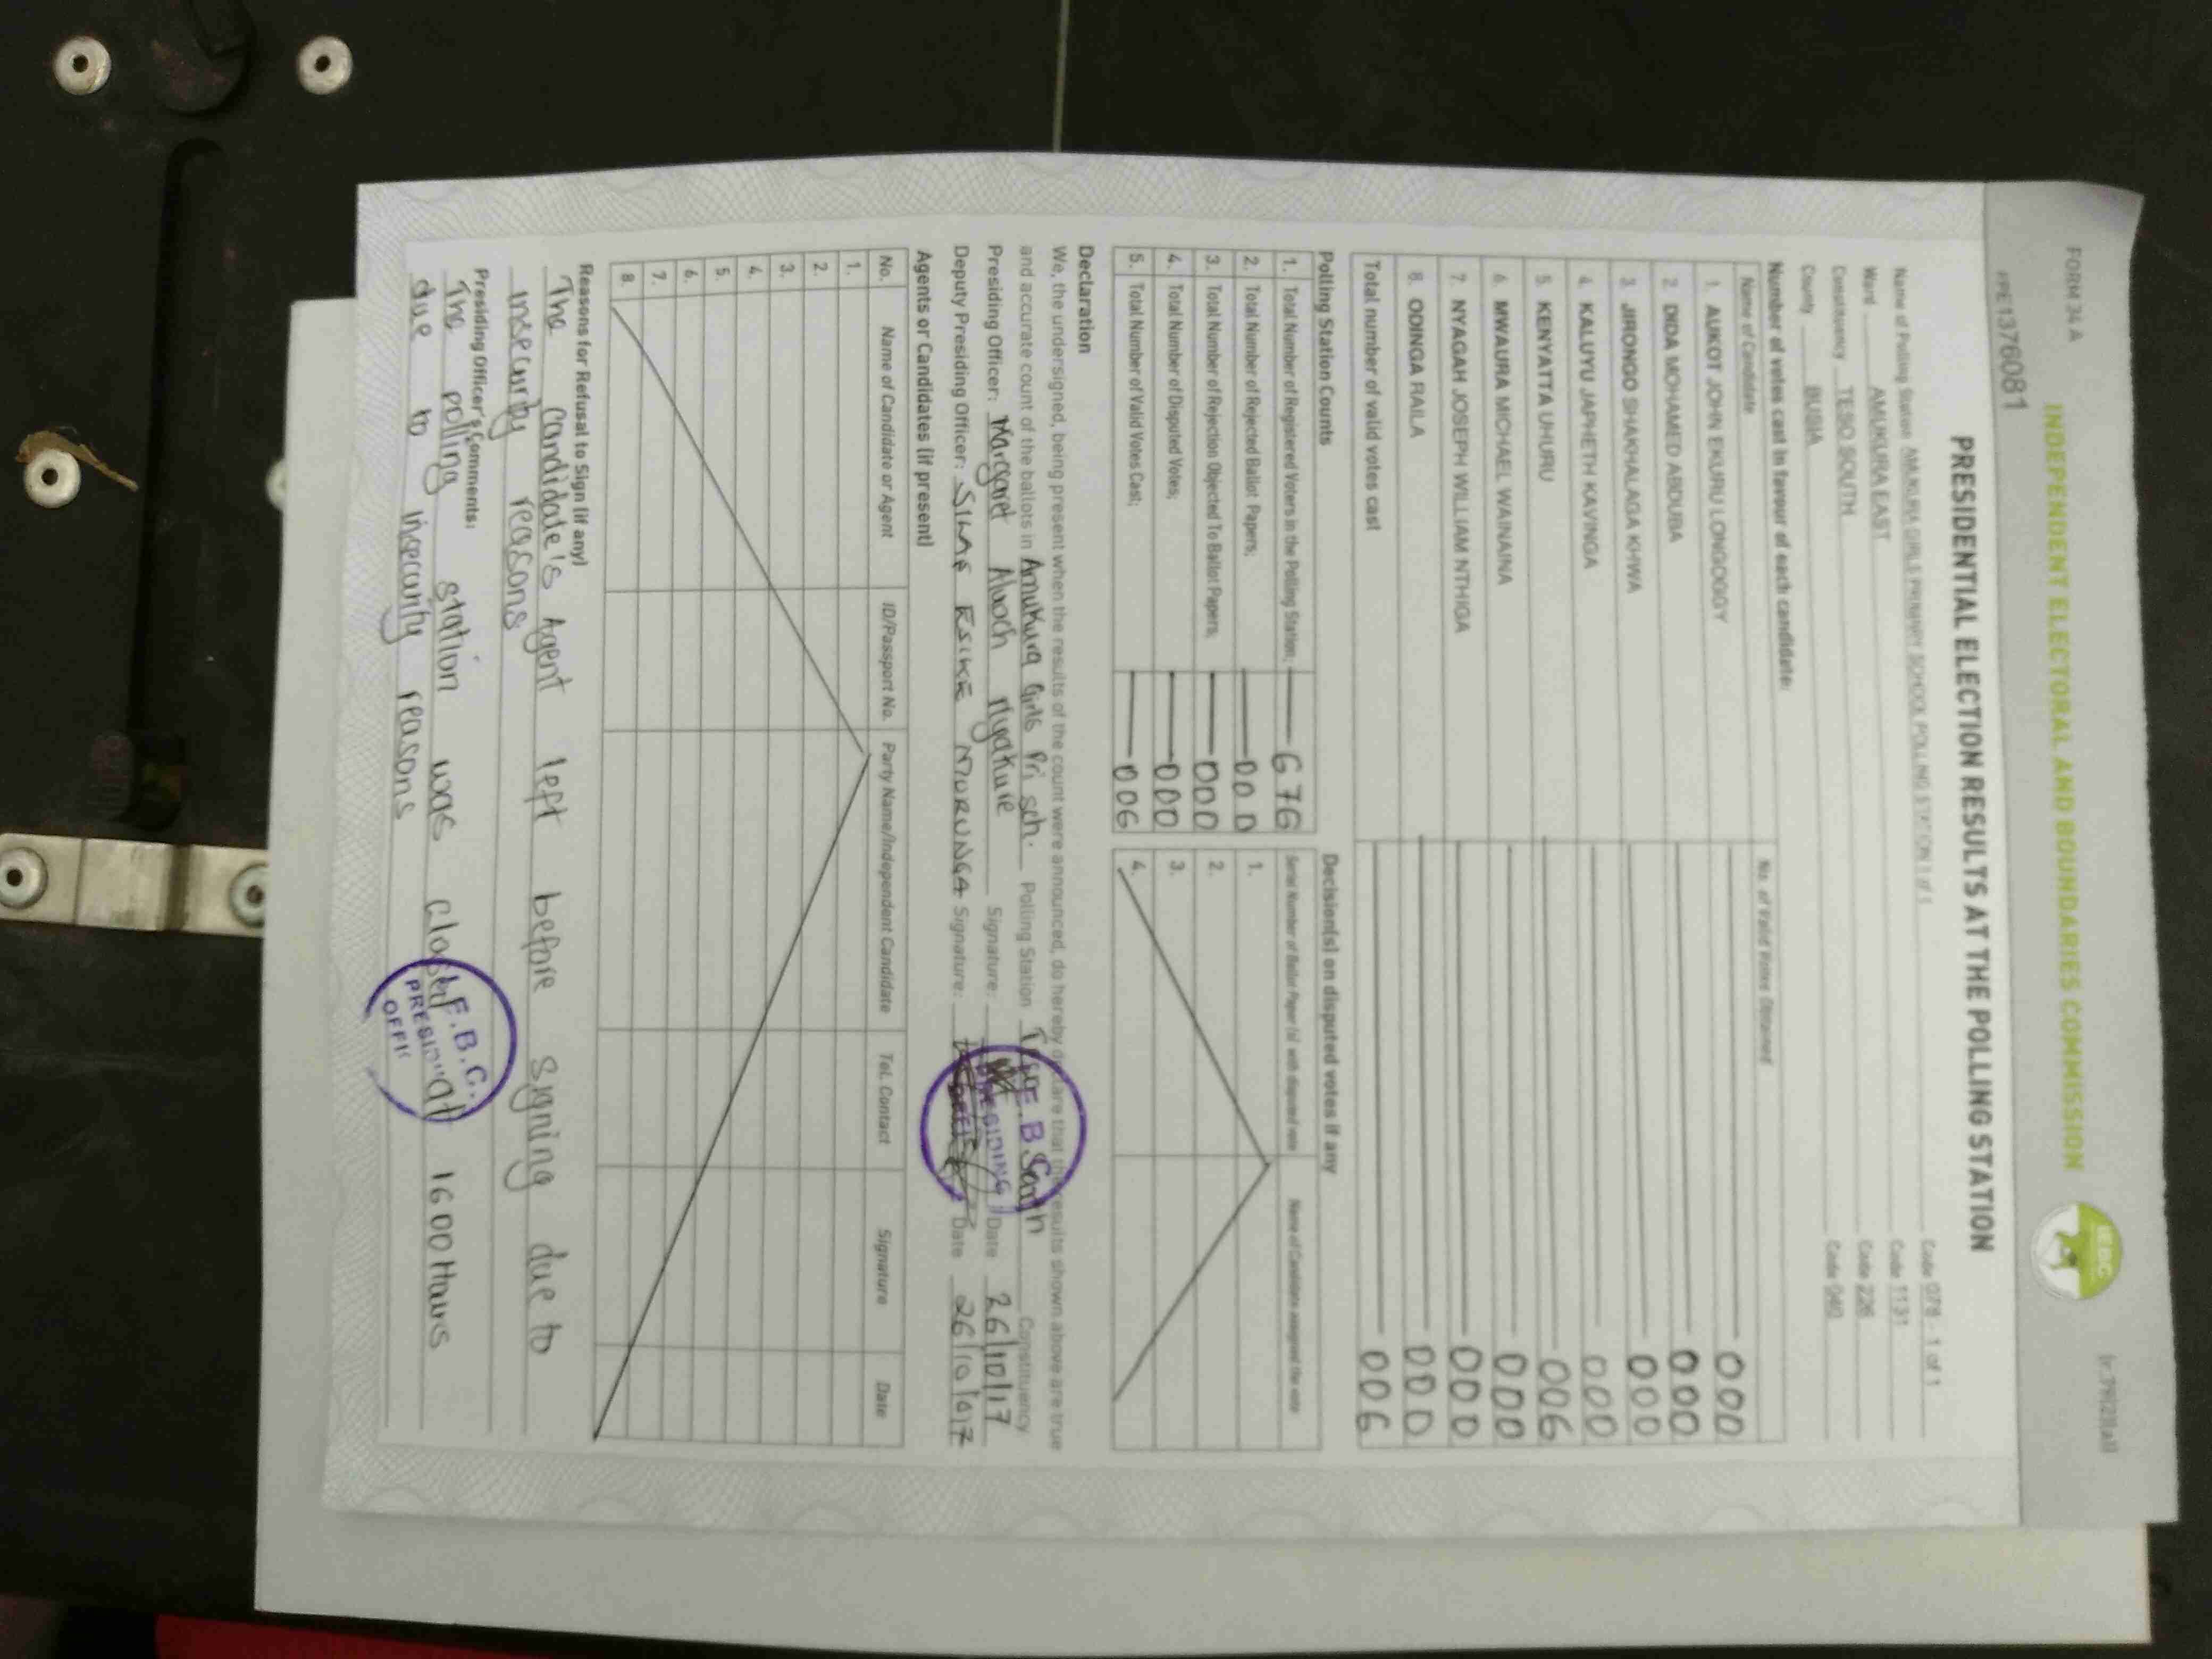 FORM 34 A
INDEPENDENT ELECTORAL AND BOUNDARIES COMMISSION
IEBC
PRE1376081
PRESIDENTIAL ELECTION RESULTS AT THE POLLING STATION
Name of Polling Station AMUKURA GIRLS PRIMARY SCHOOL POLLING STATION 1 of 1 Code 078 - 1 of 1
Ward AMUKURA EAST Code 1131
Constituency TESO SOUTH Code 226
County BUSIA Code 040
Number of votes cast in favour of each candidate:
Name of Candidate No. of Valid Votes Obtained
1. AUKOT JOHN EKURU LONGOGGY 000
2. DIDA MOHAMED ABDUBA 000
3. JIRONGO SHAKHALAGA KHWA 000
4. KALUYU JAPHETH KAVINGA 000
5. KENYATTA UHURU 006
6. MWAURA MICHAEL WAINAINA 000
7. NYAGAH JOSEPH WILLIAM NTHIGA 000
8. ODINGA RAILA 000
Total number of valid votes cast 006
Polling Station Counts
1. Total Number of Registered Voters in the Polling Station; 676
2. Total Number of Rejected Ballot Papers; 000
3. Total Number of Rejection Objected To Ballot Papers; 000
4. Total Number of Disputed Votes; 000
5. Total Number of Valid Votes Cast; 006
Decision(s) on disputed votes if any
Serial Number of Ballot Paper (s) with disputed vote Name of Candidate assigned the vote
1.
2.
3.
4.
Declaration
We, the undersigned, being present when the results of the count were announced, do hereby declare that the results shown above are true
and accurate count of the ballots in Amukura Girls Pri sch. Polling Station Teso South Constituency
Presiding Officer: Margaret Aluoch Nyakure Signature: Date 26/10/17
Deputy Presiding Officer: Signature: Date 26/10/017
Agents or Candidates (if present)
No. Name of Candidate or Agent ID/Passport No. Party Name/Independent Candidate Tel. Contact Signature Date
1.
2.
3.
4.
5.
6.
7.
8.
Reasons for Refusal to Sign (if any)
The Candidate's Agent left before signing due to
insecurity reasons
Presiding Officer's Comments:
The polling station was closed at 1600 Hours
due to insecurity reasons